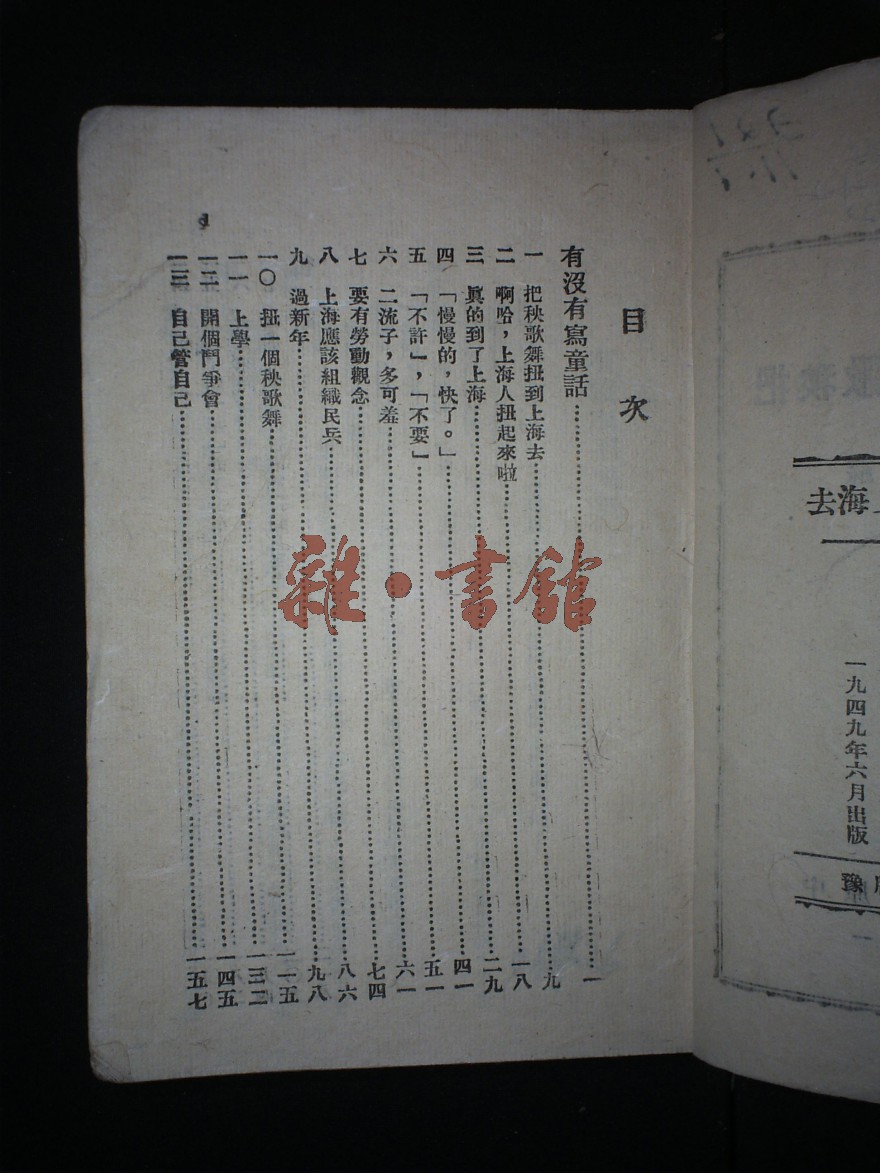 去海
一九四九年六月出版
豫
目次
有沒有寫童話……一
一 把秧歌舞扭到上海去……九
二 啊哈，上海人扭起來啦……一八
三 眞的到了上海……二九
四 「慢慢的，快了。」……四一
五 「不許」，「不要」……五一
六 二流子，多可羞……六一
七 要有勞動觀念……七四
八 上海應該組織民兵……八六
九 過新年……九八
一〇 扭一個秧歌舞……一一五
一一 上學……一三二
一二 開個鬥爭會……一四五
一三 自己管自己……一五七
1
雜·書館